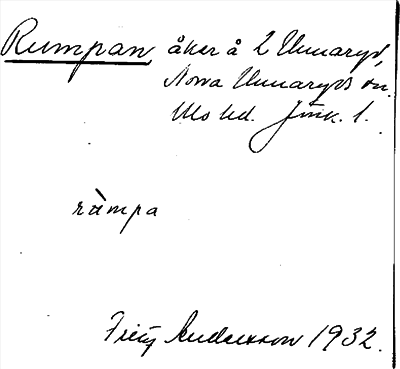 Rumpan åker å 2 Unnaryd,
Norra Unnaryds sn.
Mo hd. Jönk. l.
råmpa
Fritz Andersson 1932.